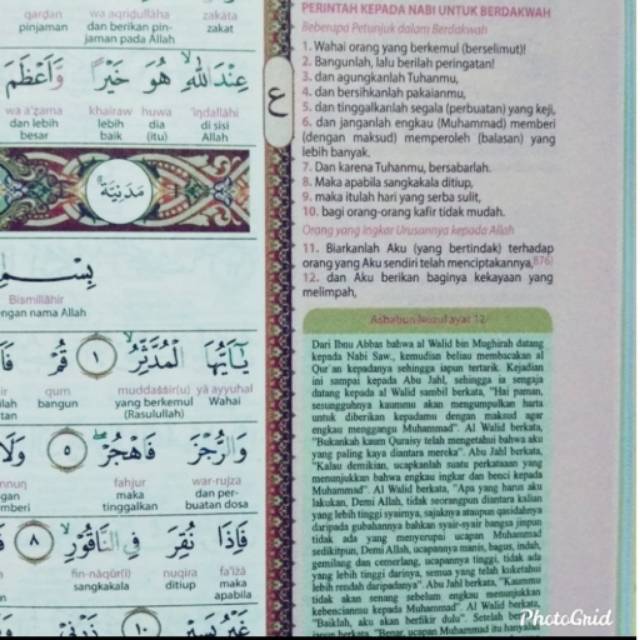 qardan
pinjaman
wa aqriḍullāha
dan berikan pin-
jaman pada Allah
zakāta
zakat
عِنْدَ اللّٰهِ هُوَ خَيْرًا وَّاَعْظَمَ
wa a'ẓama khairaw huwa 'indallāhi
dan lebih lebih dia di sisi
besar baik (itu) Allah
مَدَنِيَّة
ع
بِسْمِ
Bismillāhir
ngan nama Allah
يٰٓاَيُّهَا الْمُدَّثِّرُ ۙ ١ قُمْ
qum muddaṡṡir(u) yā ayyuhal
bangun yang berkemul Wahai
(Rasulullah)
وَالرُّجْزَ فَاهْجُرْ ۖ ٥ وَلَا
fahjur war-rujza
maka dan per-
tinggalkan buatan dosa
فَاِذَا نُقِرَ فِى النَّاقُوْرِ ۙ ٨
fin-nāqūr(i) nuqira fa'iżā
sangkakala ditiup maka
apabila
غَيْرُ يَسِيْرٍ ١٠ ذَرْنِيْ
PERINTAH KEPADA NABI UNTUK BERDAKWAH
Beberapa Petunjuk dalam Berdakwah
1. Wahai orang yang berkemul (berselimut)!
2. Bangunlah, lalu berilah peringatan!
3. dan agungkanlah Tuhanmu,
4. dan bersihkanlah pakaianmu,
5. dan tinggalkanlah segala (perbuatan) yang keji,
6. dan janganlah engkau (Muhammad) memberi
(dengan maksud) memperoleh (balasan) yang
lebih banyak.
7. Dan karena Tuhanmu, bersabarlah.
8. Maka apabila sangkakala ditiup,
9. maka itulah hari yang serba sulit,
10. bagi orang-orang kafir tidak mudah.
Orang yang Ingkar Urusannya kepada Allah
11. Biarkanlah Aku (yang bertindak) terhadap
orang yang Aku sendiri telah menciptakannya,876)
12. dan Aku berikan baginya kekayaan yang
melimpah,
Asbabun Nuzul ayat 12
Dari Ibnu Abbas bahwa al Walid bin Mughirah datang
kepada Nabi Saw., kemudian beliau membacakan al
Qur'an kepadanya sehingga iapun tertarik. Kejadian
ini sampai kepada Abu Jahl, sehingga ia sengaja
datang kepada al Walid sambil berkata, "Hai paman,
sesungguhnya kaummu akan mengumpulkan harta
untuk diberikan kepadamu dengan maksud agar
engkau menggangu Muhammad". Al Walid berkata,
"Bukankah kaum Quraisy telah mengetahui bahwa aku
yang paling kaya diantara mereka". Abu Jahl berkata,
"Kalau demikian, ucapkanlah suatu perkataaan yang
menunjukkan bahwa engkau ingkar dan benci kepada
Muhammad". Al Walid berkata, "Apa yang harus aku
lakukan, Demi Allah, tidak seorangpun diantara kalian
yang lebih tinggi syairnya, sajaknya ataupun qasidahnya
daripada gubahannya bahkan syair-syair bangsa jinpun
tidak ada yang menyerupai ucapan Muhammad
sedikitpun, Demi Allah, ucapannya manis, bagus, indah,
gemilang dan cemerlang, ucapannya tinggi, tidak ada
yang lebih tinggi darinya, semua yang telah kuketahui
lebih rendah daripadanya". Abu Jahl berkata, "Kaummu
tidak akan senang sebelum engkau menunjukkan
kebencianmu kepada Muhammad". Al Walid berkata,
"Baiklah, aku akan berfikir dulu". Setelah
berkata, "Benar, ucapan Muhammad itu
PhotoGrid